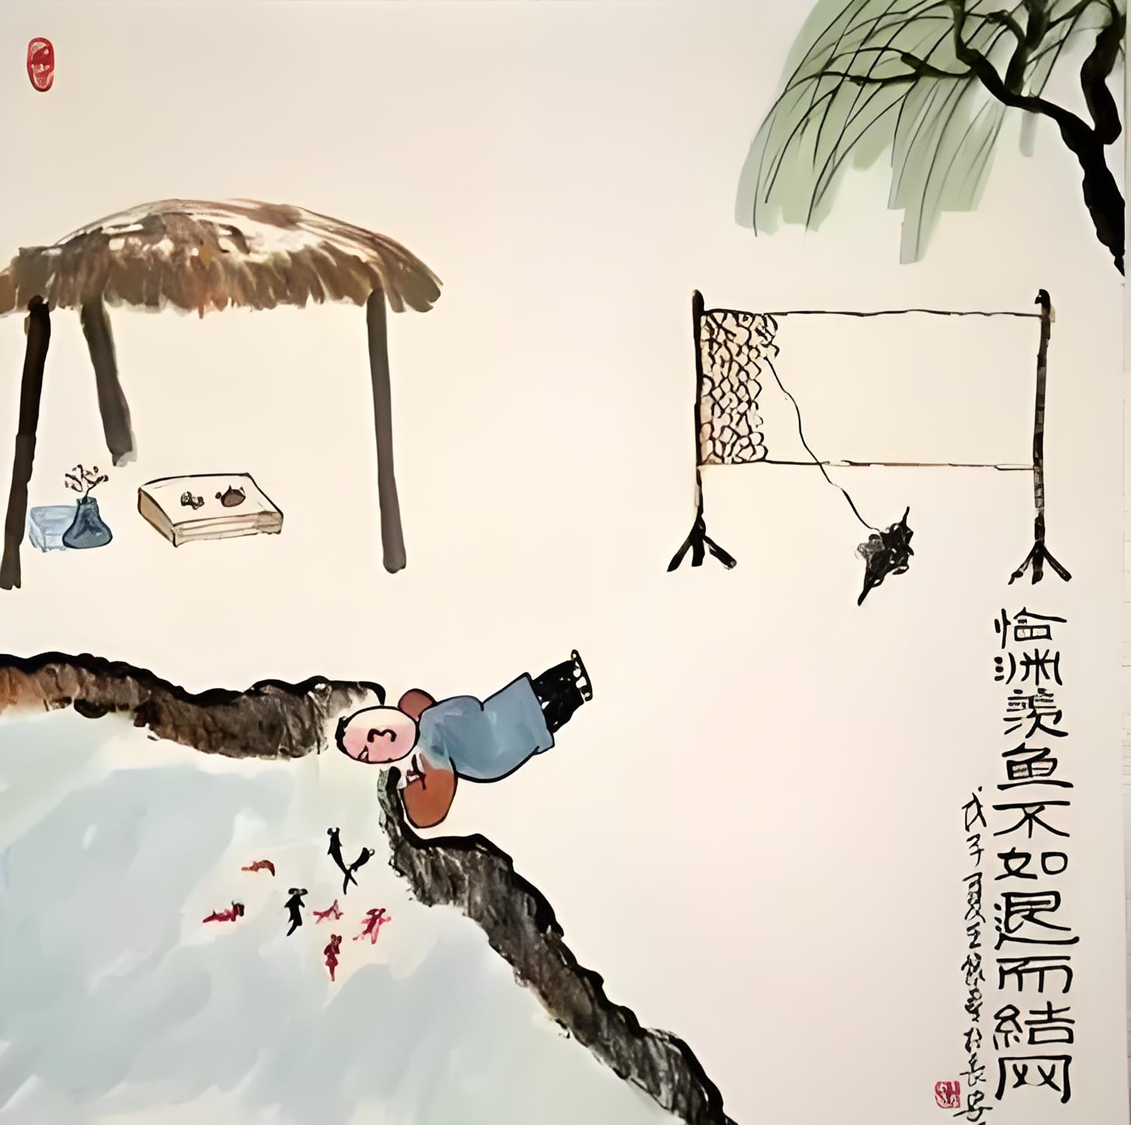 临渊羡鱼不如退而結网
戊子夏王於長安